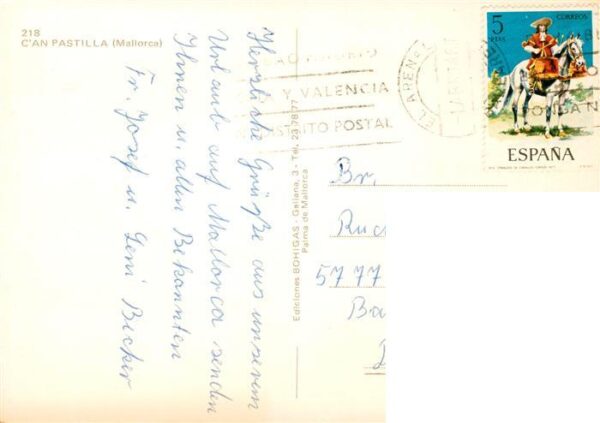 218
C'AN PASTILLA (Mallorca)
Herzliche Grüße aus unserem
Urlaub auf Mallorca senden
Ihnen u. allen Bekannten
Fr. Josef u. Leni Becker
Ediciones BOHIGAS - Gallana, 3 - Tel. 23 78 77
Palma de Mallorca
Y VALENCIA
POSTAL
EL ARENAL
5
PTAS
CORREOS
ESPAÑA
Br.
5777